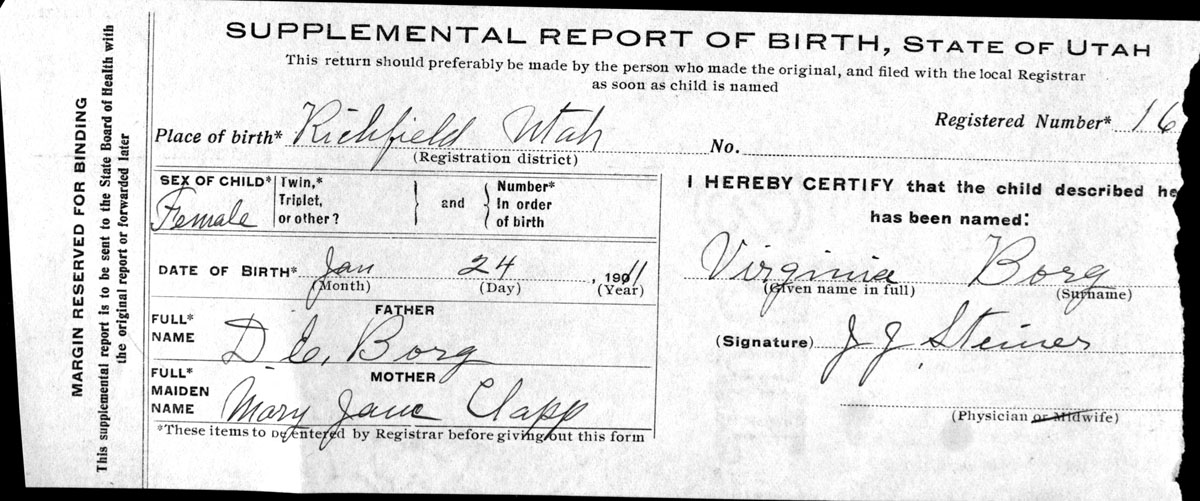 MARGIN RESERVED FOR BINDING
This supplemental report is to be sent to the State Board of Health with
the original report or forwarded later
SUPPLEMENTAL REPORT OF BIRTH, STATE OF UTAH
This return should preferably be made by the person who made the original, and filed with the local Registrar
as soon as child is named
Registered Number* 16
Place of birth* Richfield Utah No.
(Registration district)
SEX OF CHILD* Female
Twin,* Triplet, or other? } and { Number* In order of birth
DATE OF BIRTH* Jan 24, 1911
(Month) (Day) (Year)
FATHER
FULL* NAME D. E. Borg
MOTHER
FULL* MAIDEN NAME Mary Jane Clapp
*These items to be entered by Registrar before giving out this form
I HEREBY CERTIFY that the child described he
has been named:
Virginia Borg
(Given name in full) (Surname)
(Signature) J J Steiner
(Physician or Midwife)